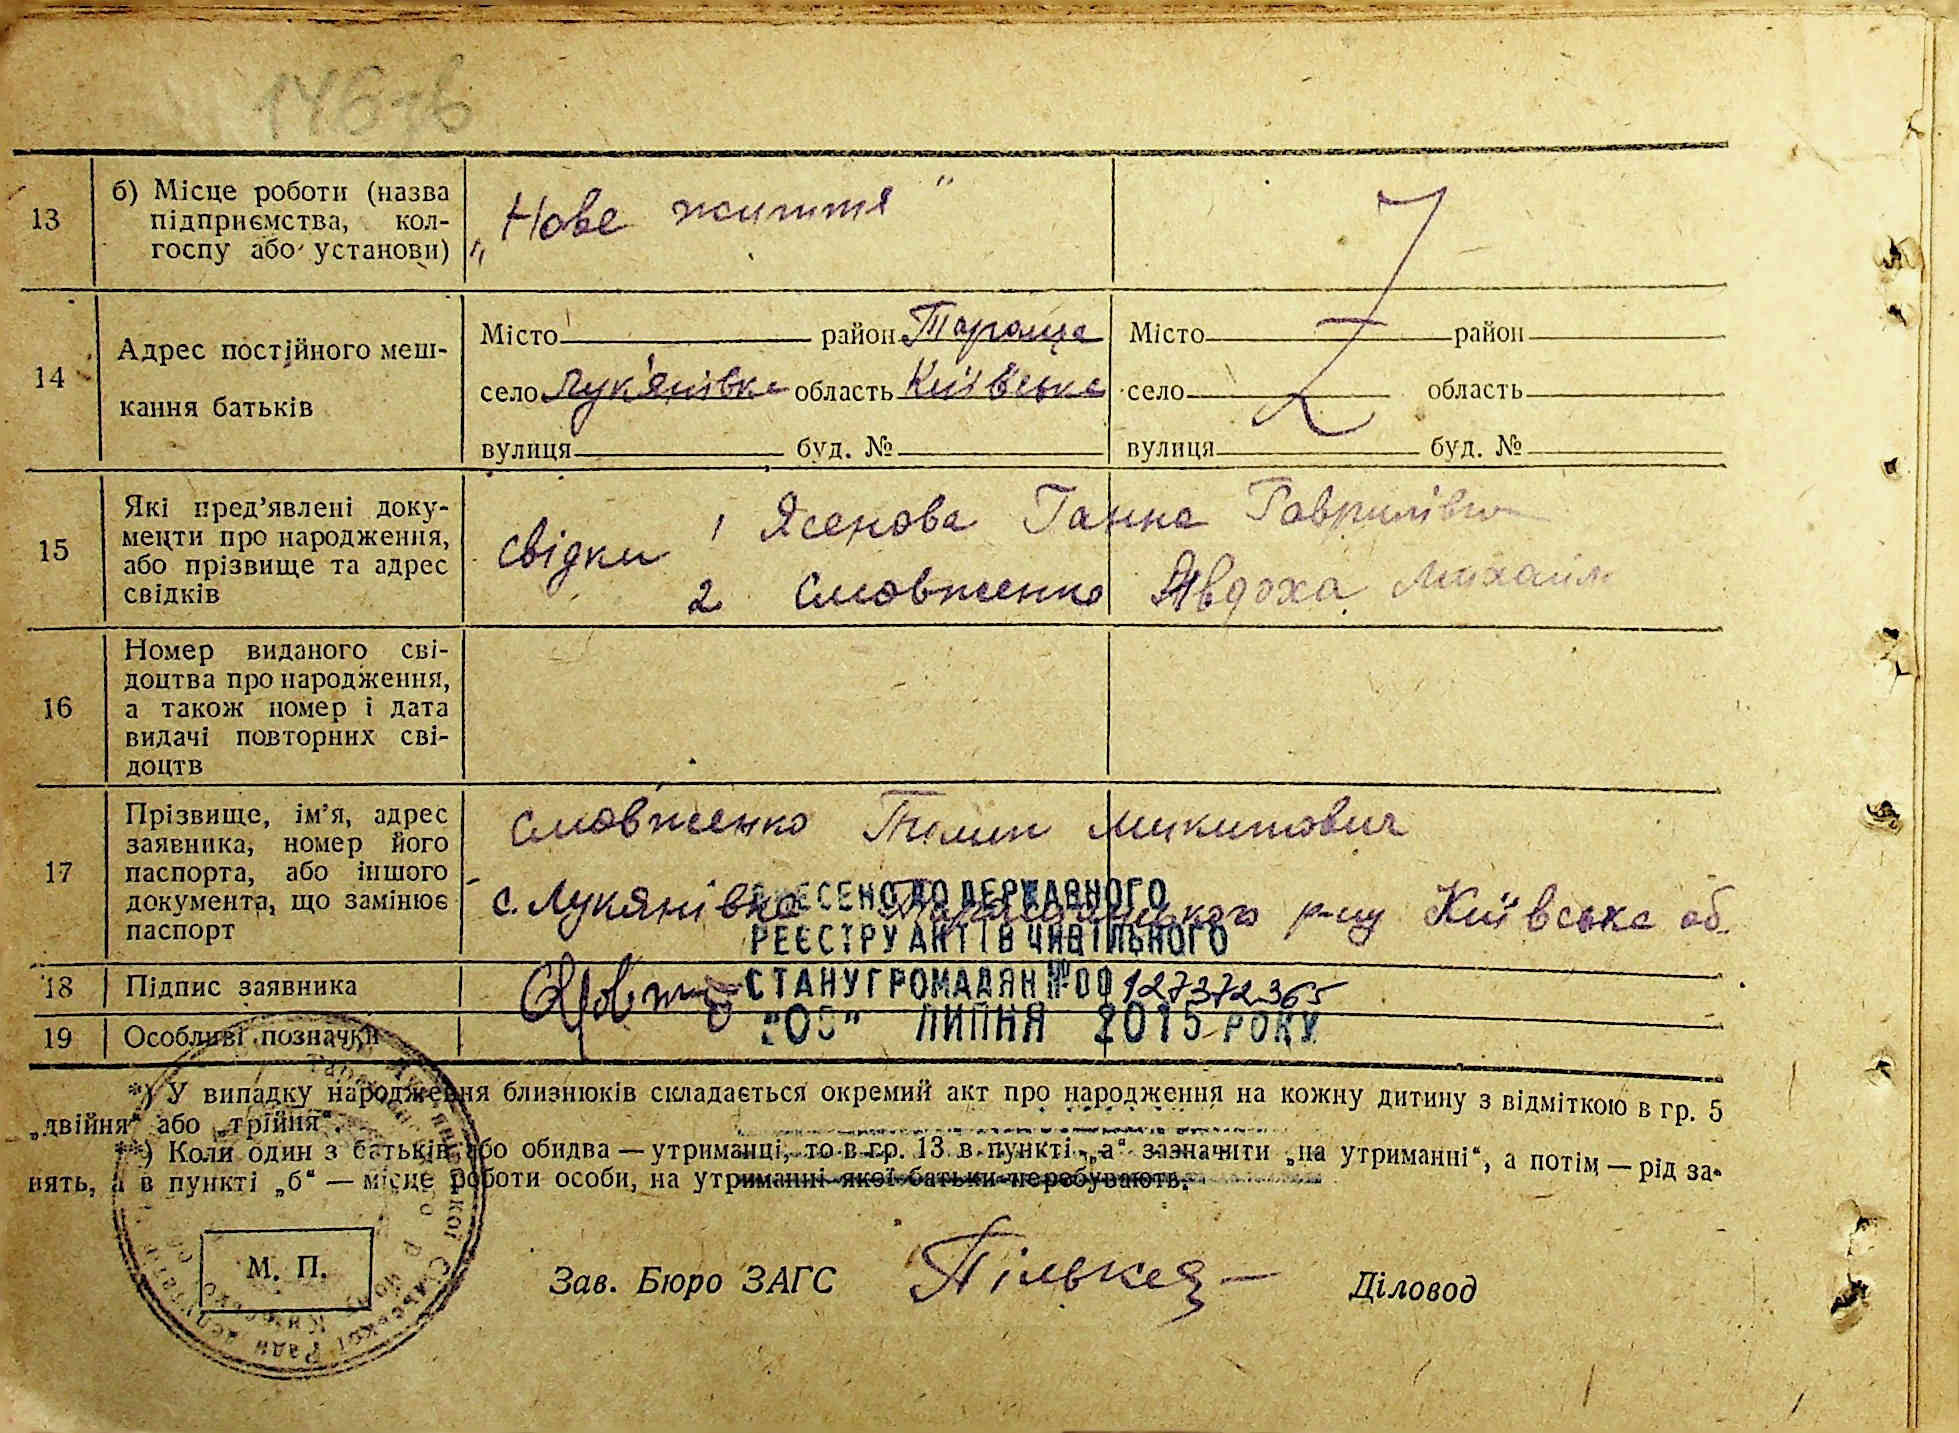 146 зв
13
б) Місце роботи (назва
підприємства, кол-
госпу або установи)
„Нове життя"
14
Адрес постійного меш-
кання батьків
Місто район Тараща
село Лук'янівка область Київська
вулиця буд. №
Місто район
село область
вулиця буд. №
15
Які пред'явлені доку-
менти про народження,
або прізвище та адрес
свідків
свідки 1 Ясенова Ганна Гаврилівна
2 Смовженко Явдоха Михайл
16
Номер виданого сві-
доцтва про народження,
а також номер і дата
видачі повторних сві-
доцтв
17
Прізвище, ім'я, адрес
заявника, номер його
паспорта, або іншого
документа, що замінює
паспорт
Смовженко Микитович
с. Лукянівка Таращанського р-ну Київська об.
ВНЕСЕНО ДО ДЕРЖАВНОГО
РЕЄСТРУ АКТІВ ЦИВІЛЬНОГО
СТАНУ ГРОМАДЯН №00 127372365
"     " ЛИПНЯ 2015 РОКУ
18
Підпис заявника
19
Особливі позначки
*) У випадку народження близнюків складається окремий акт про народження на кожну дитину з відміткою в гр. 5
„двійня" або „трійня".
**) Коли один з батьків або обидва — утриманці, то в гр. 13 в пункті „а" зазначити „на утриманні", а потім — рід за-
нять, а в пункті „б" — місце роботи особи, на утриманні якої батьки перебувають.
М. П.
Зав. Бюро ЗАГС
Діловод